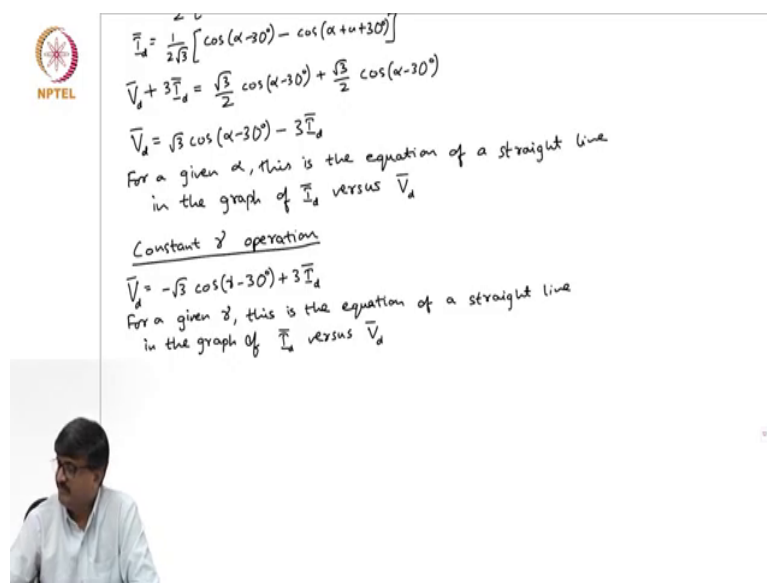 Ī_d = 1/(2√3) [cos(α-30°) - cos(α+u+30°)]
NPTEL
V̄_d + 3Ī_d = √3/2 cos(α-30°) + √3/2 cos(α-30°)
V̄_d = √3 cos(α-30°) - 3Ī_d
For a given α, this is the equation of a straight line
in the graph of Ī_d versus V̄_d
Constant γ operation
V̄_d = -√3 cos(γ-30°) + 3Ī_d
For a given γ, this is the equation of a straight line
in the graph of Ī_d versus V̄_d